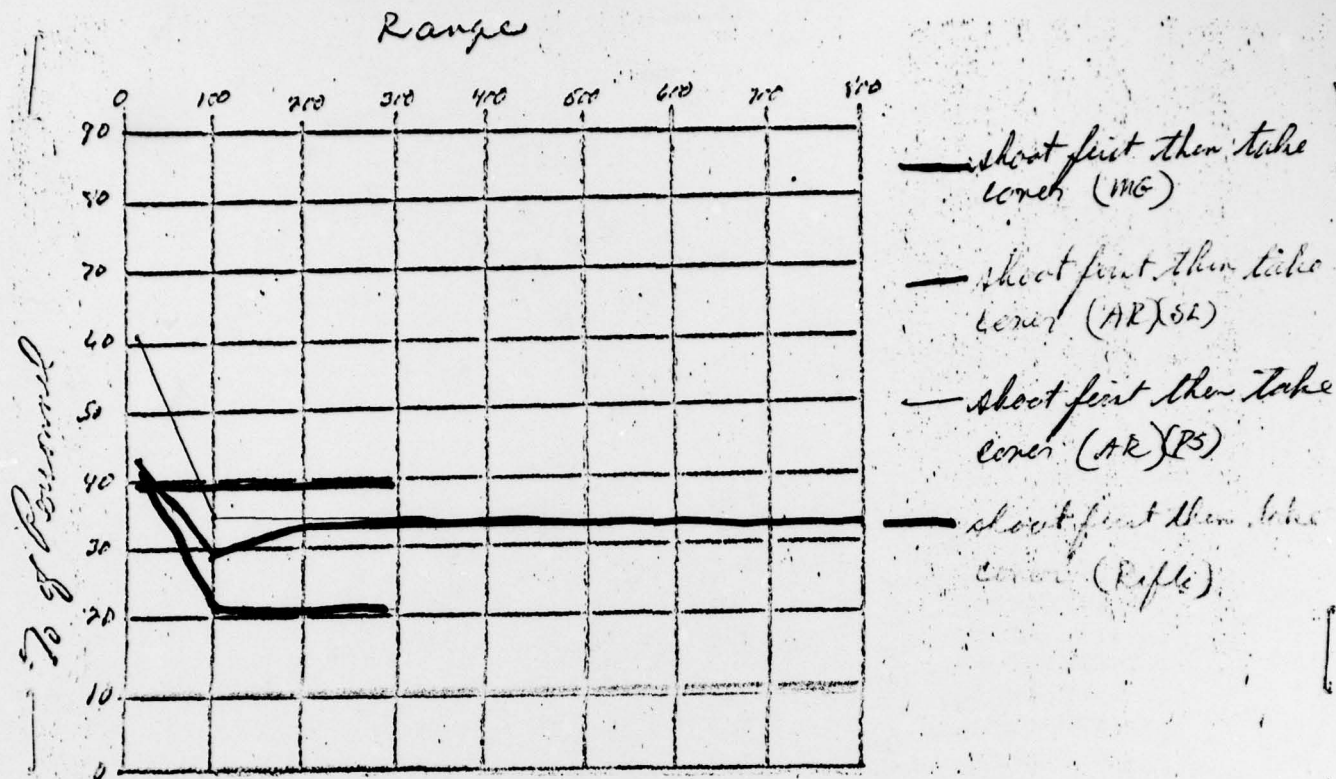 Range
0 100 200 300 400 500 600 700 800
90
80
70
60
50
40
30
20
10
0
% of Personnel
shoot first then take
cover (MG)
shoot first then take
cover (AR)(SL)
shoot first then take
cover (AR)(PS)
shoot first then take
cover (Rifle)